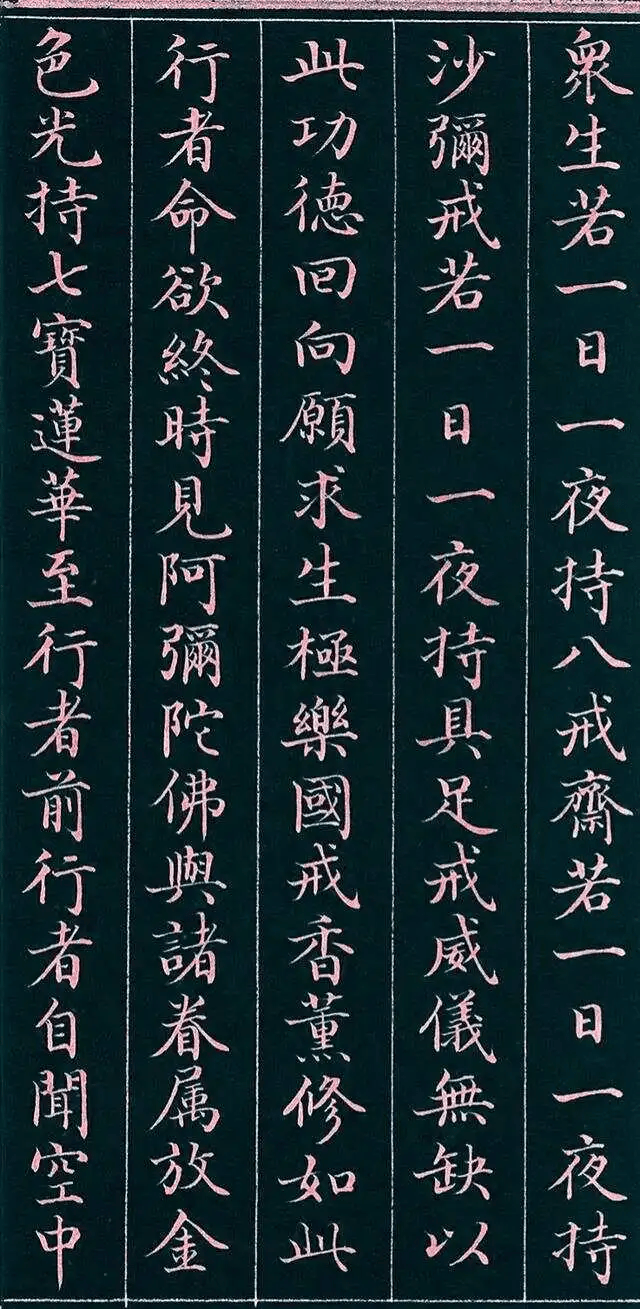 衆生若一日一夜持八戒齋若一日一夜持
沙彌戒若一日一夜持具足戒威儀無缺以
此功德回向願求生極樂國戒香薰修如此
行者命欲終時見阿彌陀佛與諸眷属放金
色光持七寶蓮華至行者前行者自聞空中